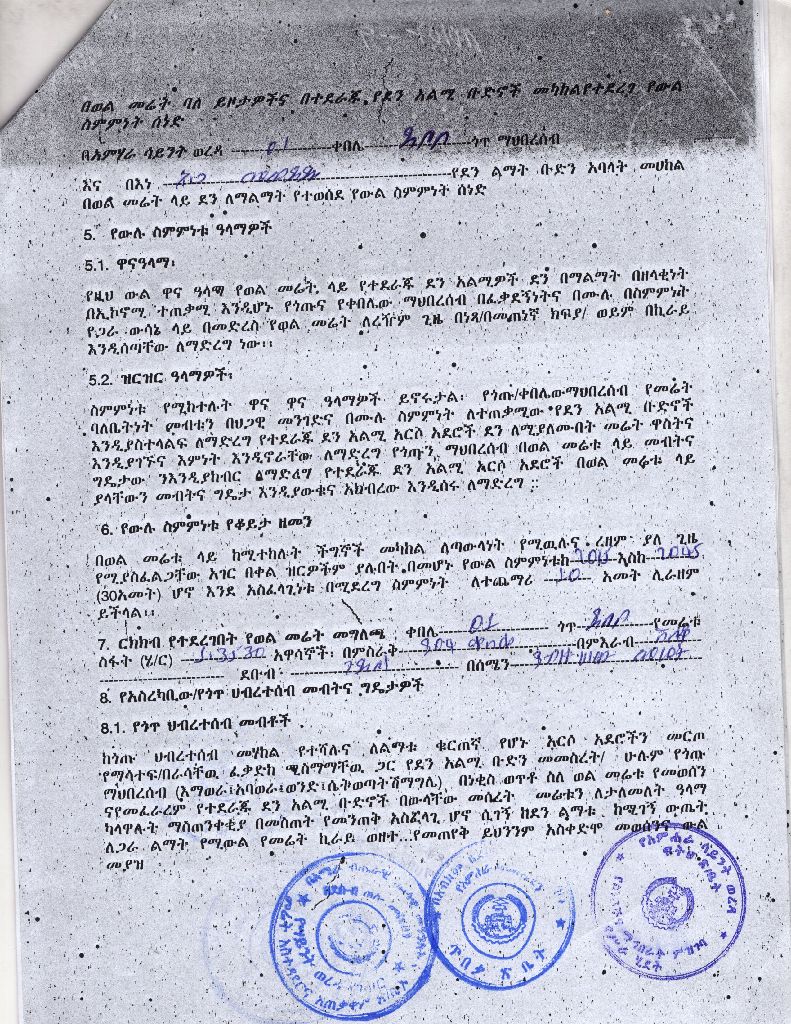 በወል መሬት ባለ ይዞታዎችና በተደራጁ የደን አልሚ ቡድኖች መካከልየተደረገ የውል
ስምምነት ሰነድ
በአምሃራ ሳይንት ወረዳ 01 ቀበሌ ጎጥ ማህበረሰብ
እና በእነ የደን ልማት ቡድን አባላት መሀከል
በወል መሬት ላይ ደን ለማልማት የተወሰደ የውል ስምምነት ሰነድ
5. የውሉ ስምምነቱ ዓላማዎች
5.1. ዋናዓላማ፡
የዚህ ውል ዋና ዓላማ የወል መሬት ላይ የተደራጁ ደን አልሚዎች ደን በማልማት በዘላቂነት
በኢኮኖሚ ተጠቃሚ እንዲሆኑ የጎጡና የቀበሌው ማህበረሰብ በፈቃደኝነትና በሙሉ በስምምነት
የጋራ ውሳኔ ላይ በመድረስ የወል መሬት ለረዥም ጊዜ በነጻ/በመጠነኛ ክፍያ/ ወይም በኪራይ
እንዲሰጣቸው ለማድረግ ነው፡፡
5.2. ዝርዝር ዓላማዎች፡
ስምምነቱ የሚከተሉት ዋና ዋና ዓላማዎች ይኖሩታል፡ የጎጡ/ቀበሌውማህበረሰብ የመሬት
ባለቤትነት መብቱን በህጋዊ መንገድና በሙሉ ስምምነት ለተጠቃሚው የደን አልሚ ቡድኖች
እንዲያስተላልፍ ለማድረግ የተደራጁ ደን አልሚ አርሶ አደሮች ደን ለሚያለሙበት መሬት ዋስትና
እንዲያገኙና እምነት እንዲኖራቸው ለማድረግ የጎጡን ማህበረሰብ በወል መሬቱ ላይ መብትና
ግዴታው ንእንዲያከብር ለማድረግ የተደራጁ ደን አልሚ አርሶ አደሮች በወል መሬቱ ላይ
ያላቸውን መብትና ግዴታ እንዲያውቁና አክብረው እንዲሰሩ ለማድረግ ፡፡
6. የውሉ ስምምነቱ የቆይታ ዘመን
በወል መሬቱ ላይ ከሚተከሉት ችግኞች መካከል ለጣውላነት የሚዉሉና ረዘም ያለ ጊዜ
የሚያስፈልጋቸው አገር በቀል ዝርዎችም ያሉበት በመሆኑ የውል ስምምነቱከ እስከ
(30አመት) ሆኖ እንደ አስፈላጊነቱ በሚደረግ ስምምነት ለተጨማሪ 10 አመት ሊራዘም
ይችላል፡፡
7. ርክክብ የተደረገበት የወል መሬት መግለጫ ቀበሌ 01 ጎጥ የመሬቱ
ስፋት (ሄ/ር) አዋሳኞች፡ በምስራቅ በምእራብ
ደቡብ በሰሜን
8. የአስረካቢው/የጎጥ ህብረተሰብ መብትና ግዴታዎች
8.1. የጎጥ ህብረተሰብ መብቶች
ከጎጡ ህብረተሰብ መሃከል የተሻሉና ለልማቱ ቁርጠኛ የሆኑ አርሶ አደሮችን መርጦ
የማሳተፍ/በራሳቸዉ ፈቃድከ ሚስማማቸዉ ጋር የደን አልሚ ቡድን መመስረት/ ሁሉም የጎጡ
ማህበረሰብ በነቂስ ወጥቶ ስለ ወል መሬቱ የመወሰን
ናየመፈራረም የተደራጁ ደን አልሚ ቡድኖች በውላቸው መሰረት መሬቱን ለታለመለት ዓላማ
ካላዋሉት ማስጠንቀቂያ በመስጠት የመንጠቅ አስፈላጊ ሆኖ ሲገኝ ከደን ልማቱ ከሚገኝ ውጤት
ለጋራ ልማት የሚውል የመሬት ኪራይ ወዘተ...የመጠየቅ ይህንንም አስቀድሞ መወሰንና ውል
መያዝ